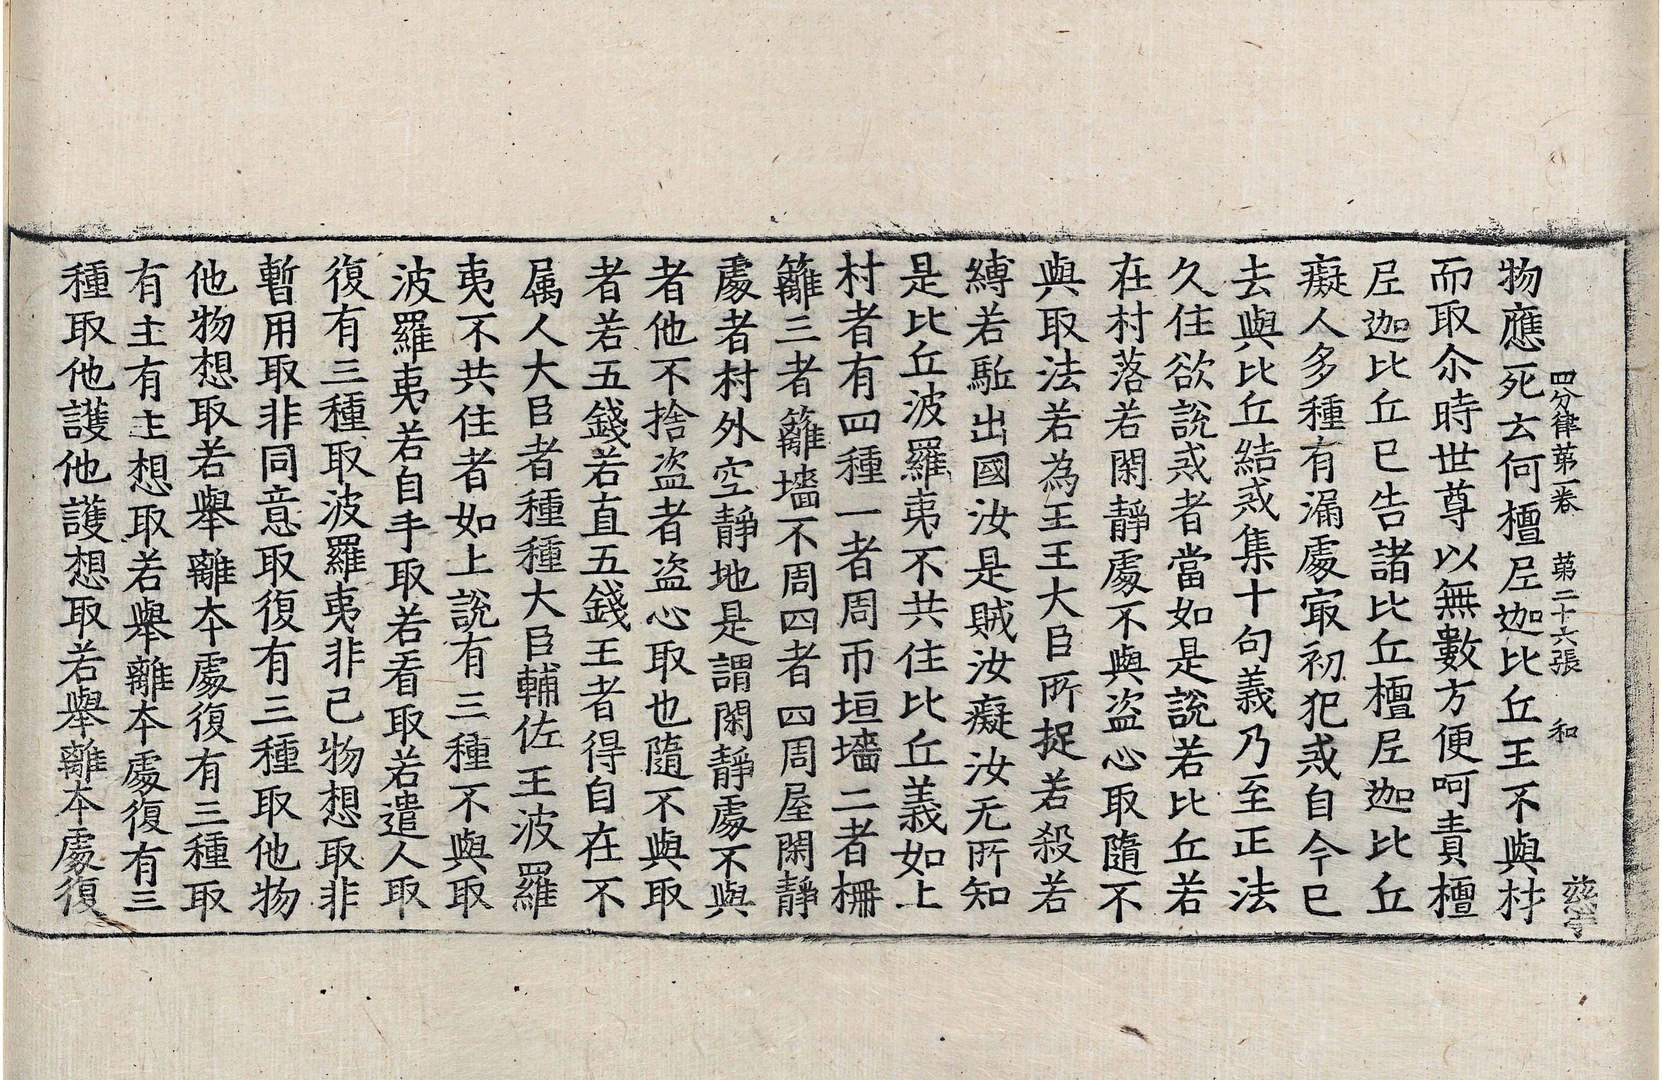 四分律第一卷 第二十六張 和 慈寧
物應死云何檀尼迦比丘王不與材
而取尒時世尊以無數方便呵責檀
尼迦比丘已告諸比丘檀尼迦比丘
癡人多種有漏處㝡初犯戒自今已
去與比丘結戒集十句義乃至正法
久住欲說戒者當如是說若比丘若
在村落若閑靜處不與盜心取隨不
與取法若為王王大臣所捉若殺若
縛若駈出國汝是賊汝癡汝无所知
是比丘波羅夷不共住比丘義如上
村者有四種一者周帀垣墻二者柵
籬三者籬墻不周四者四周屋閑靜
處者村外空靜地是謂閑靜處不與
者他不捨盜者盜心取也隨不與取
者若五錢若直五錢王者得自在不
属人大臣者種種大臣輔佐王波羅
夷不共住者如上說有三種不與取
波羅夷若自手取若看取若遣人取
復有三種取波羅夷非己物想取非
暫用取非同意取復有三種取他物
他物想取若舉離本處復有三種取
有主有主想取若舉離本處復有三
種取他護他護想取若舉離本處復